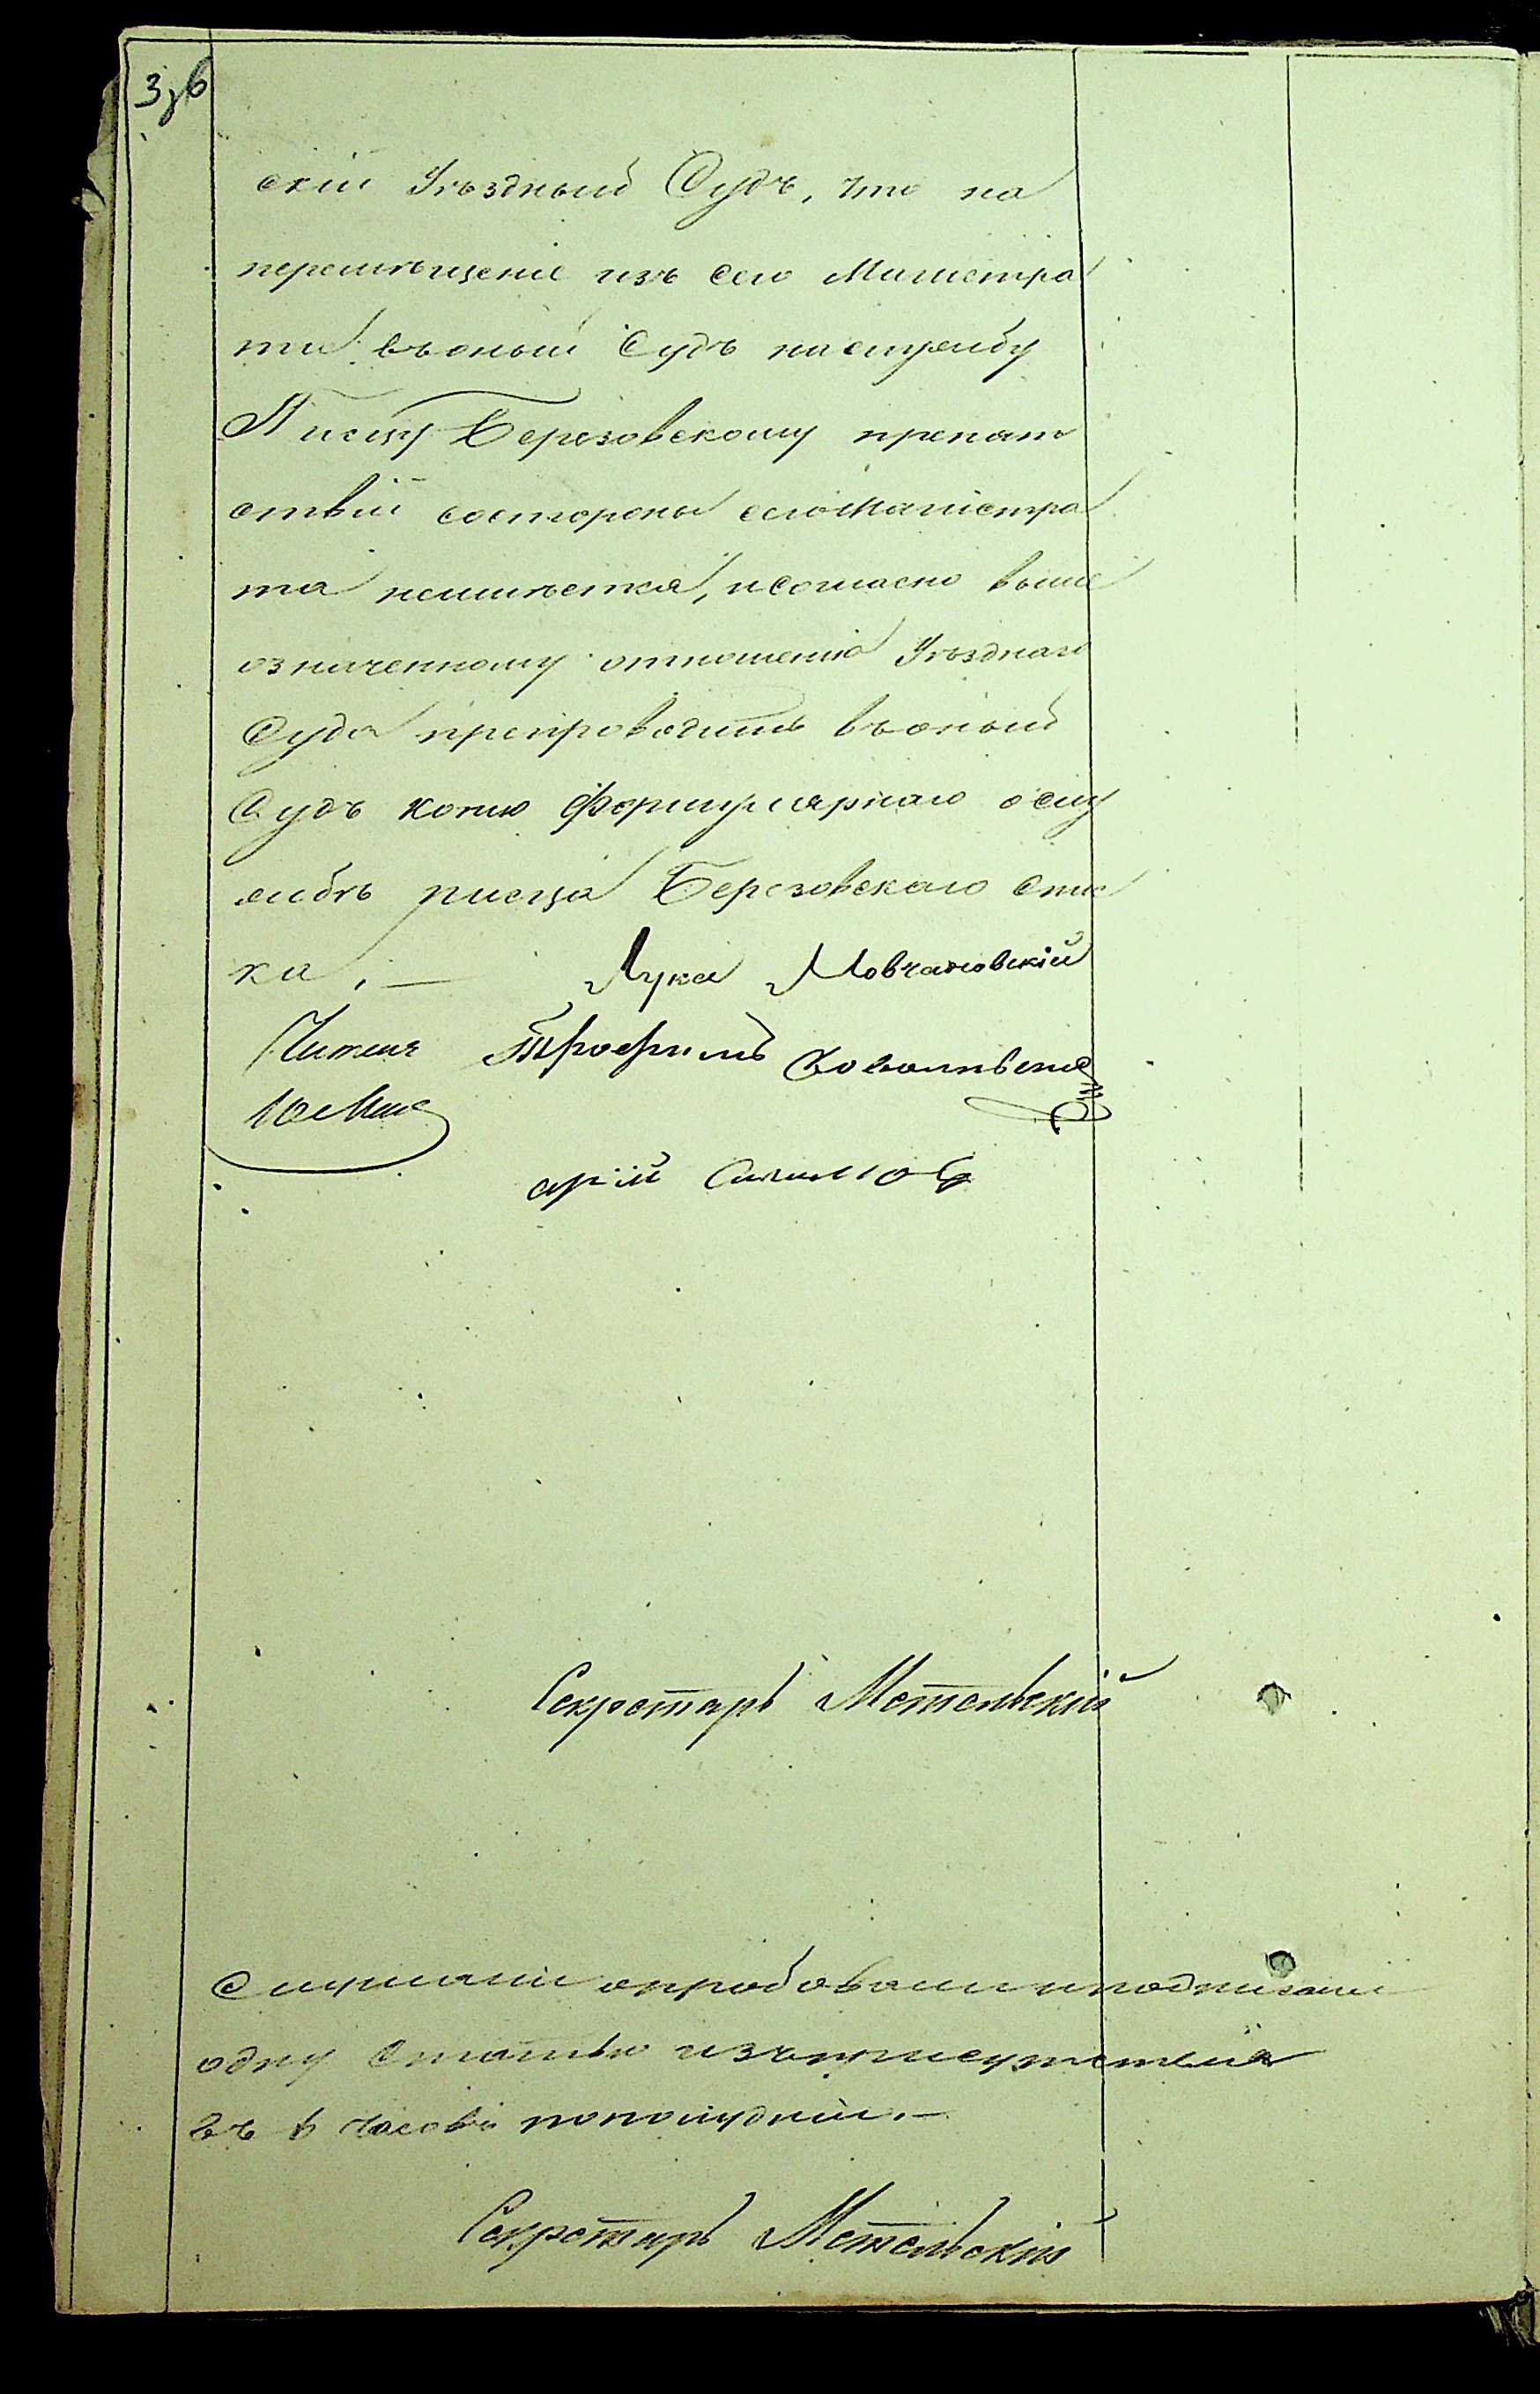 скій Уѣздный Судъ, что на
перемѣщеніе изъ сего Магистра
та въоный Судъ наслужбу
Писцу Березовскому препят
ствій состороны сегоМагистра
та неимѣется, исогласно выше
означенному отношенію Уѣзднаго
Суда препроводить въоный
Судъ копію Формулярнаго ослу
жбѣ писца Березовскаго спис
ка. —
Лука Мовчановскій
Трофимъ
арій
Секретарь Метельскій
Слушали опробовали иподписали
одну Статью изъприсутствія
въ часовъ пополудни. —
Секретарь Метельскій